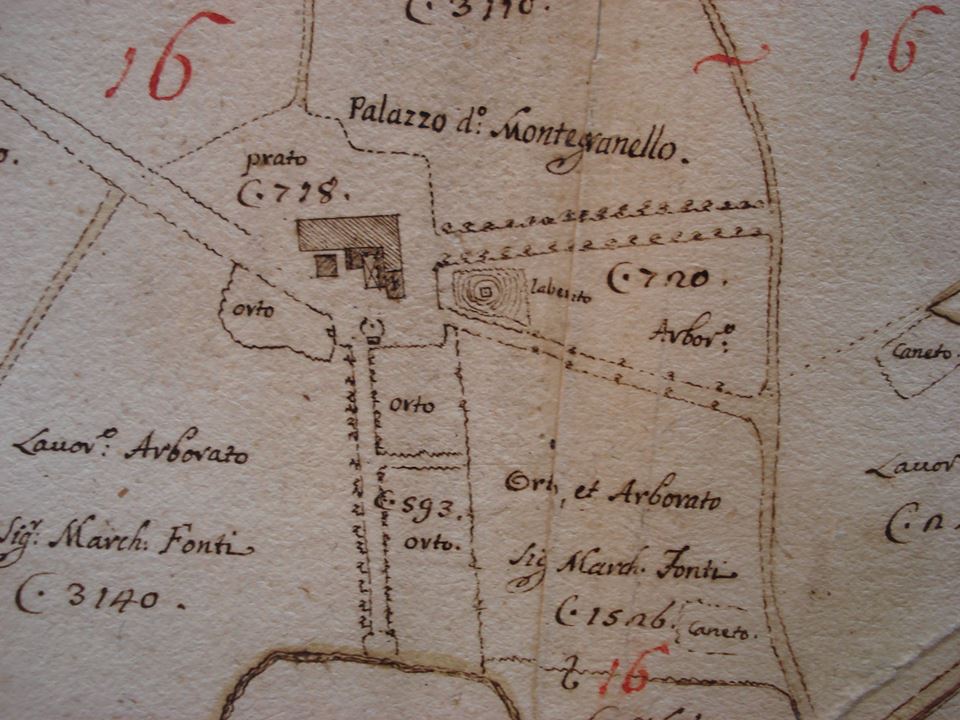 C. 3110.
16
16
Palazzo d.º Montegranello.
prato
C. 718.
C. 720.
laberito
Arbor.º
orto
Caneto.
orto
Lauor.º Arborato
Sig.r March. Fonti
C. 3140.
C. 593.
orto.
Ort. et Arborato
Sig March. Fonti
C. 1526.
Caneto.
Lauor
16